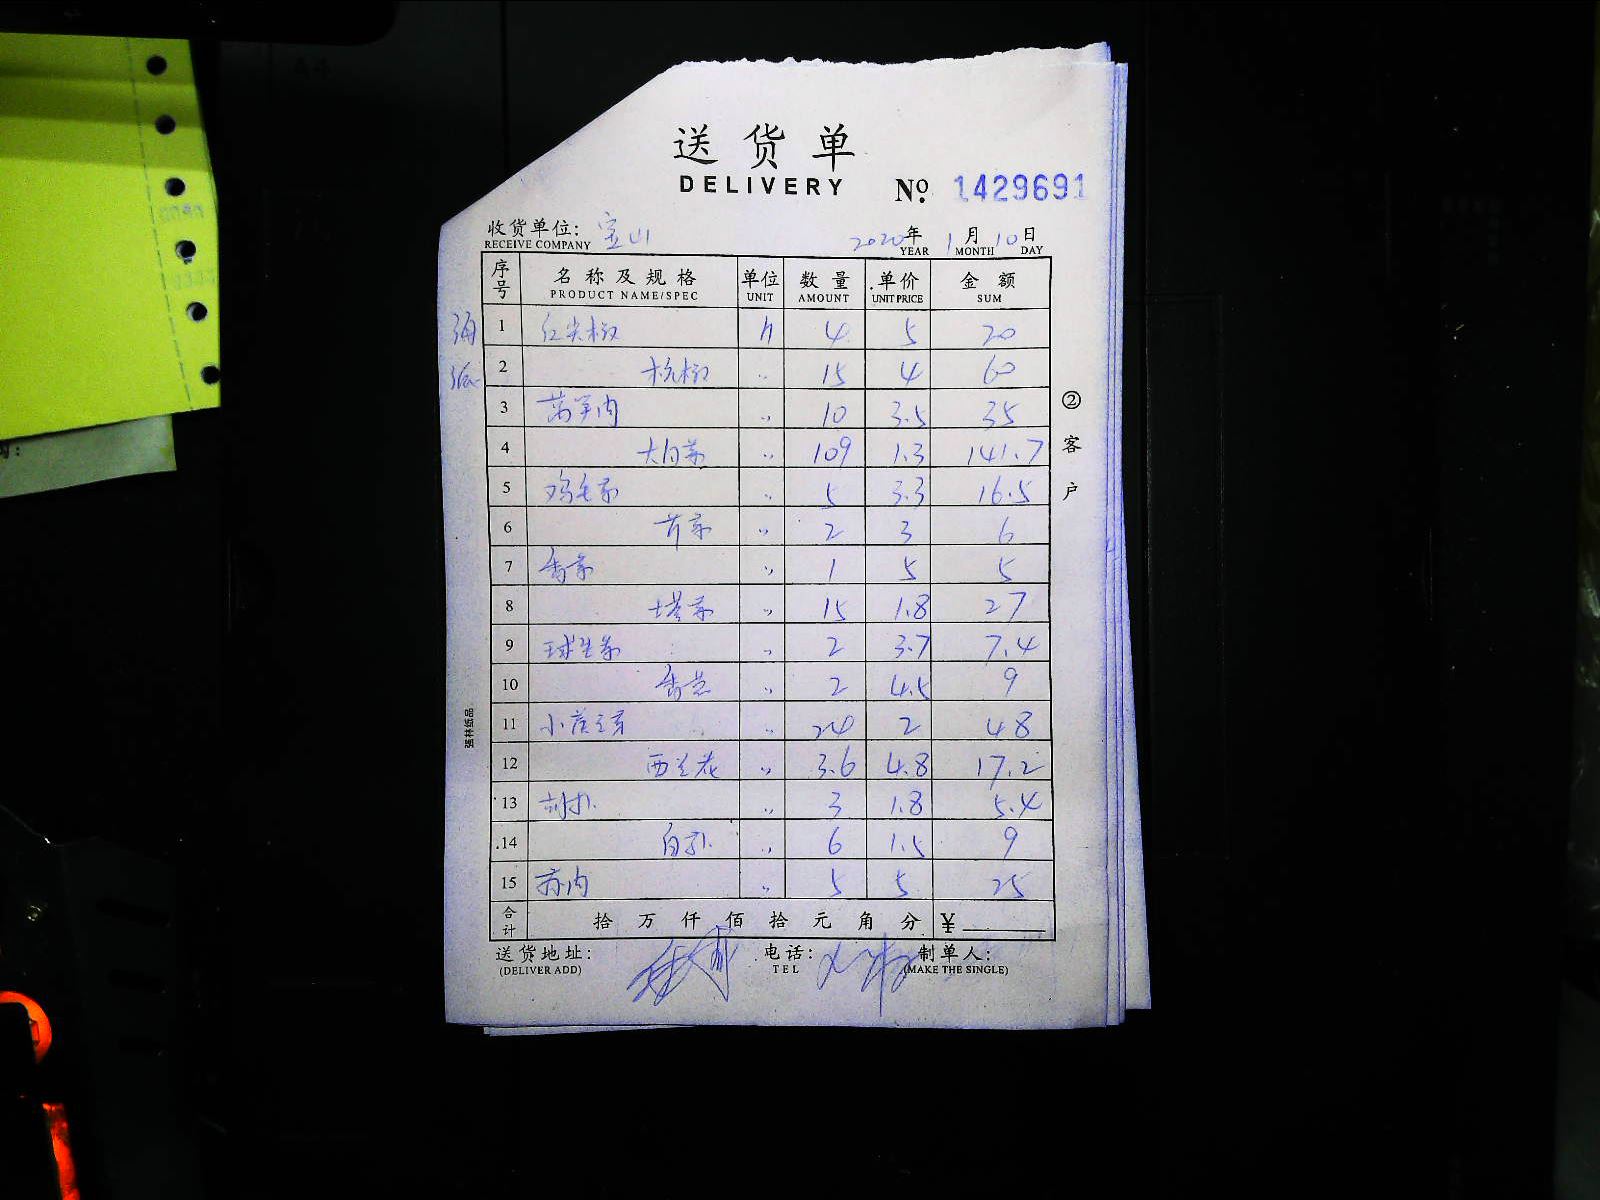 送货单
DELIVERY
No. 1429691
收货单位: 宝山
RECEIVE COMPANY
2020年 1月 10日
YEAR MONTH DAY
序号 名称及规格 单位 数量 单价 金额
PRODUCT NAME/SPEC UNIT AMOUNT UNIT PRICE SUM
1 红尖椒 斤 4 5 20
2 杭椒 〃 15 4 60
3 莴笋肉 〃 10 3.5 35
4 大白菜 〃 109 1.3 141.7
5 鸡毛菜 〃 5 3.3 16.5
6 芹菜 〃 2 3 6
7 香菜 〃 1 5 5
8 塔菜 〃 15 1.8 27
9 球生菜 〃 2 3.7 7.4
10 香芒 〃 2 4.5 9
11 小黄豆芽 〃 24 2 48
12 西兰花 〃 3.6 4.8 17.2
13 〃 3 1.8 5.4
14 〃 6 1.5 9
15 〃 5 5 25
合计 拾 万 仟 佰 拾 元 角 分 ¥
送货地址: 电话: 制单人:
(DELIVER ADD) TEL (MAKE THE SINGLE)
②客户
强林纸品
A4